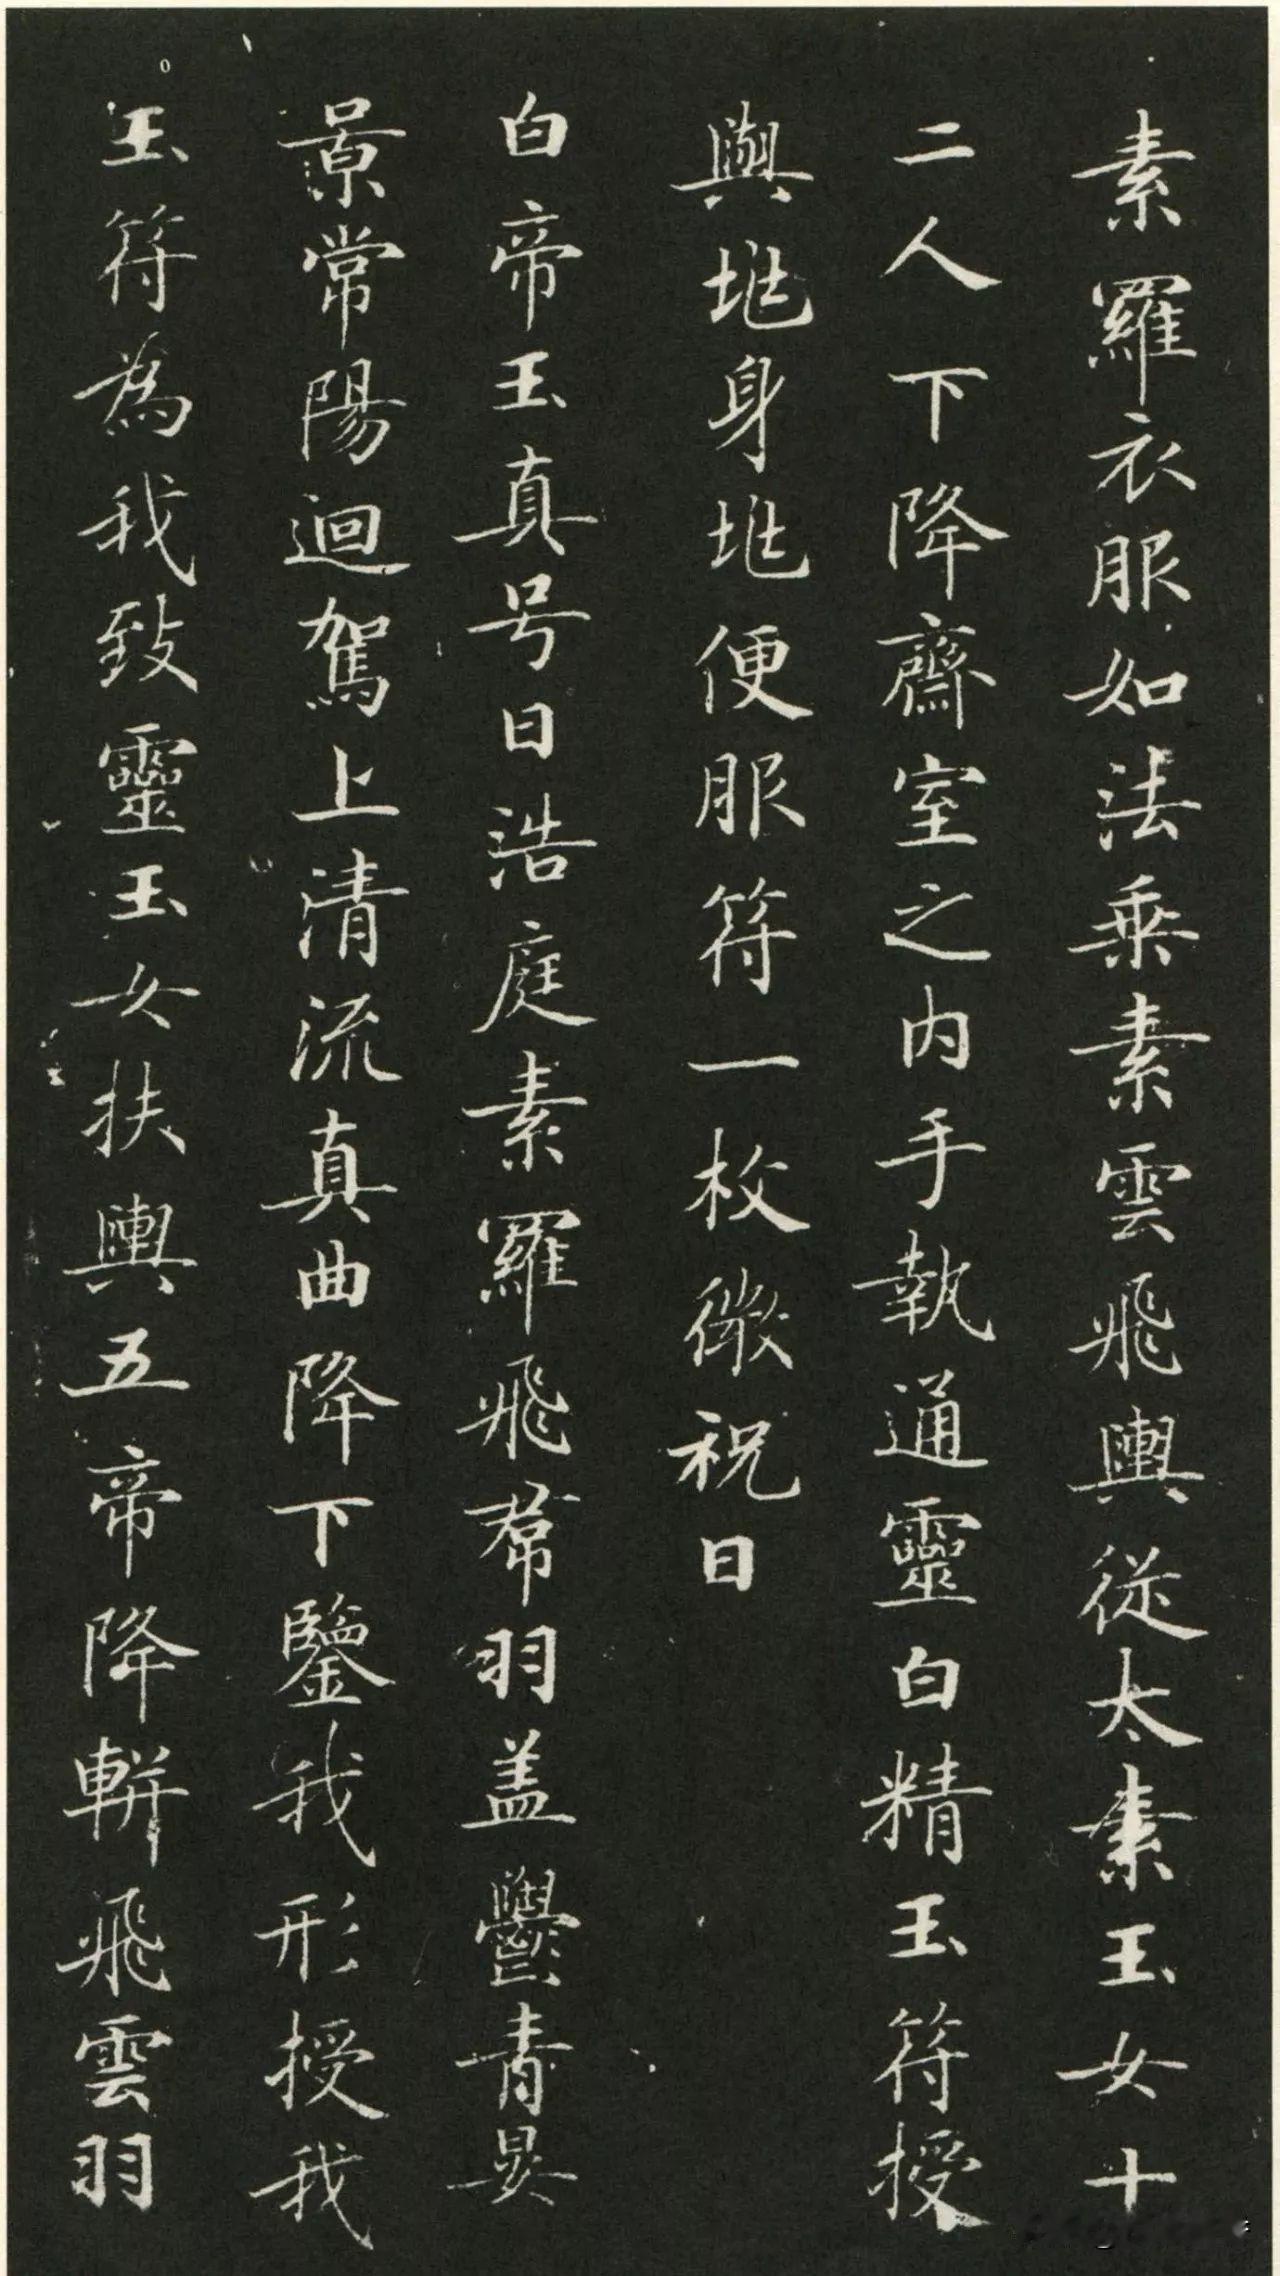 素羅衣服如法乗素雲飛輿從太素玉女十
二人下降齋室之内手執通靈白精玉符授
與地身地便服符一枚微祝曰
白帝玉真号曰浩庭素羅飛帬羽盖欝青旻
景常陽迴駕上清流真曲降下鑒我形授我
玉符為我致靈玉女扶輿五帝降軿飛雲羽